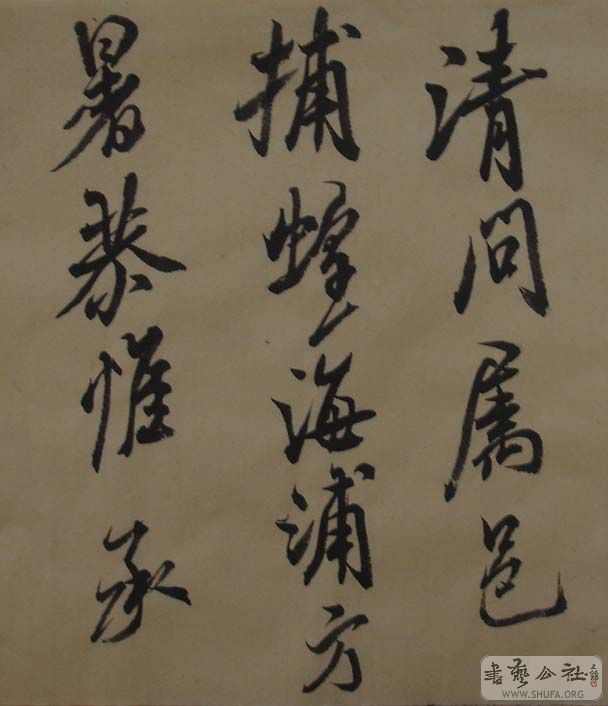 清问属邑
捕蝗海浦方
暑恭惟承
书艺公社
WWW.SHUFA.ORG